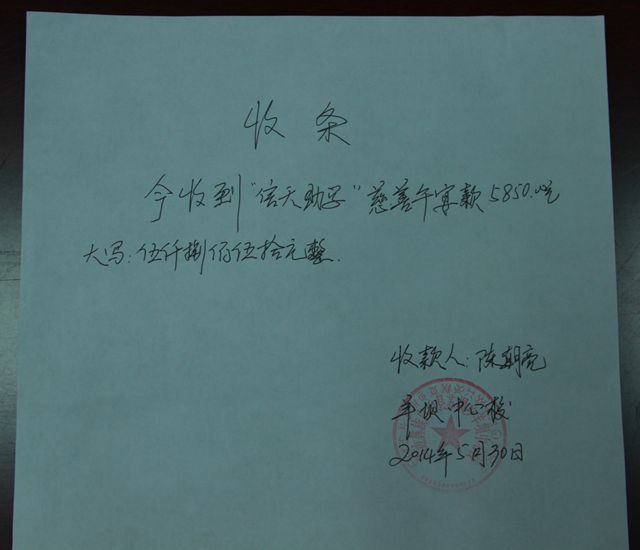 收条
今收到“信天助学”慈善午宴款5850.元
大写:伍仟捌佰伍拾元整.
收款人:陈朝亮
羊坝中心校
2014年5月30日